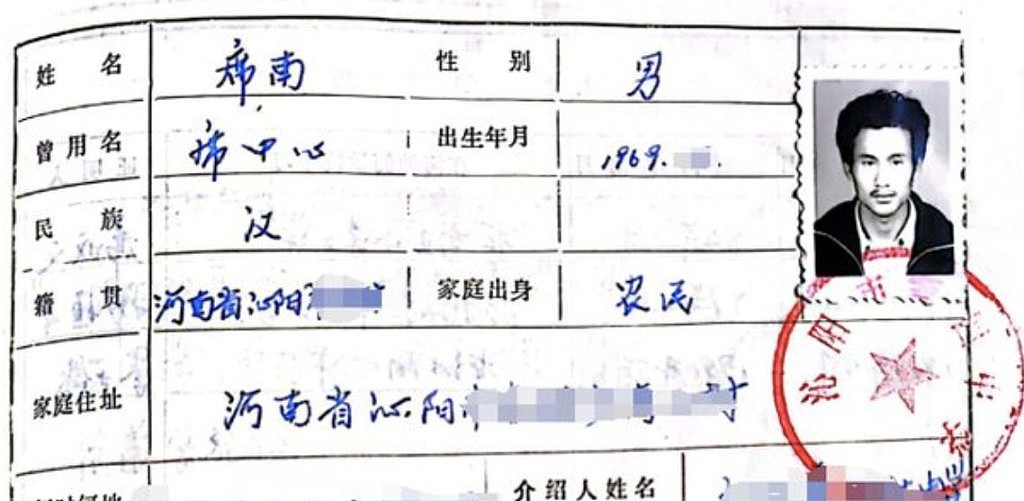 姓名 席南 性别 男
曾用名 席中心 出生年月 1969.
民族 汉
籍贯 河南省沁阳 家庭出身 农民
家庭住址 河南省沁阳 村
介绍人姓名
沁阳